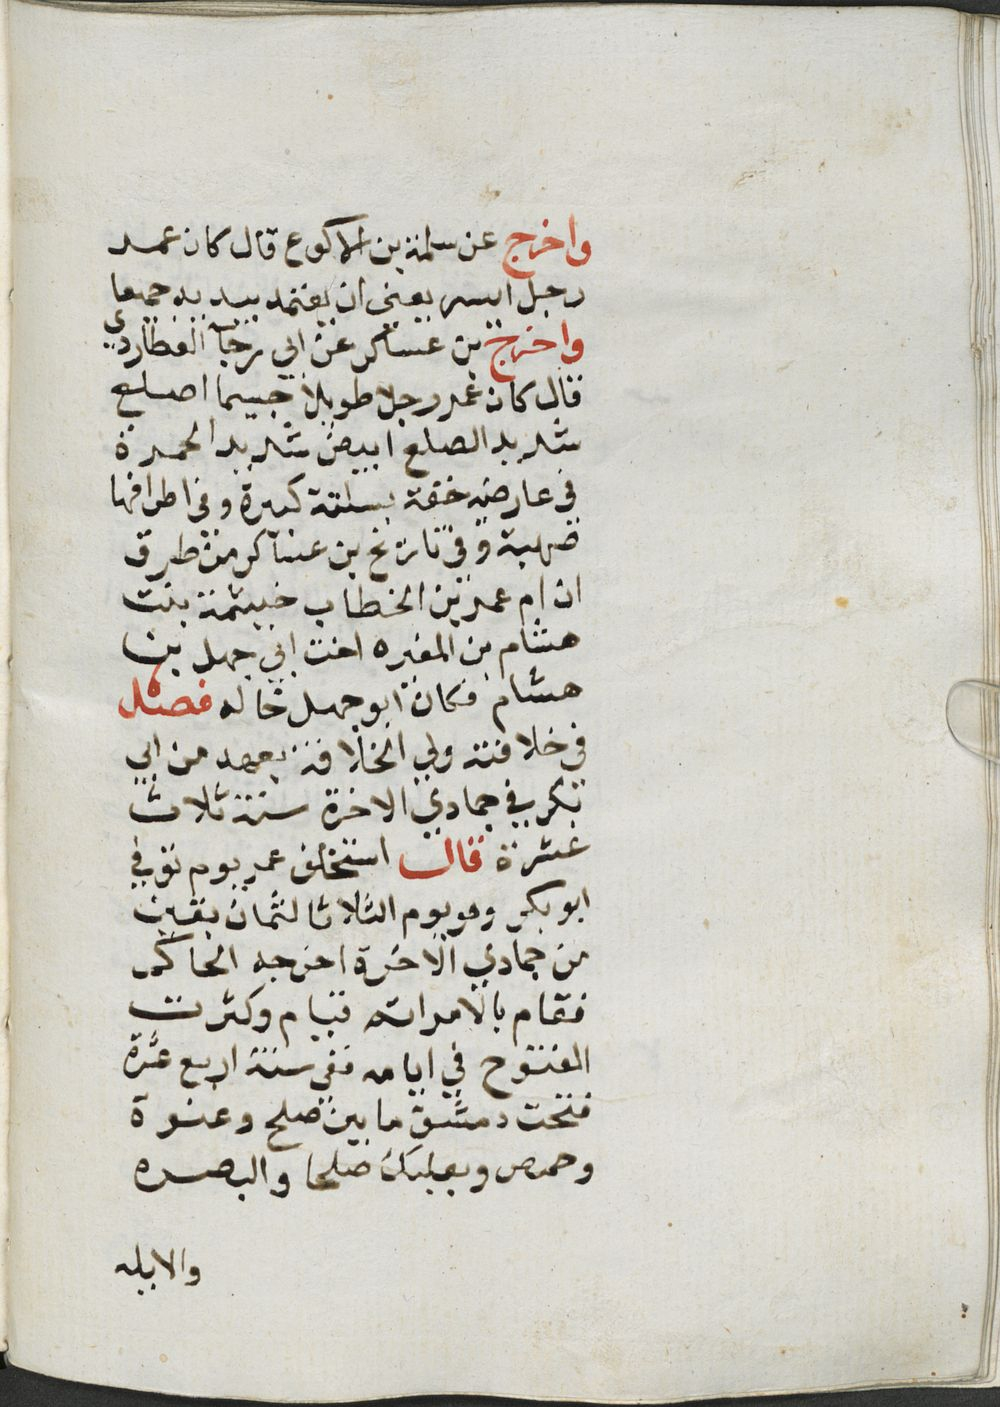 واخرج عن سلمة بن الاكوع قال كان عمر
رجل ايسر يعني ان يعتمد بيديه جميعا
واخرج بن عساكر عن ابي رجآ العطاردي
قال كان عمر رجلا طويلا جسيما اصلع
شديد الصلع ابيض شديد الحمرة
في عارضه خفة سبلته كبيرة وفي اطرافها
صهبة وفي تاريخ بن عساكر من طرق
ان ام عمر بن الخطاب خيثمة بنت
هشام بن المغيره اخت ابي جهل بن
هشام فكان ابو جهل خاله فصل
في خلافته ولي الخلافة بعهد من ابي
بكر في جمادي الاخرة سنة ثلاث
عشرة قال استخلف عمر يوم توفي
ابو بكر وهو يوم الثلاثا لثمان بقين
من جمادي الاخرة اخرجه الحاكم
فقام بالامر اتم قيام وكثرت
الفتوح في ايامه ففي سنة اربع عشرة
فتحت دمشق ما بين صلح وعنوة
وحمص وبعلبك صلحا والبصره
والابله